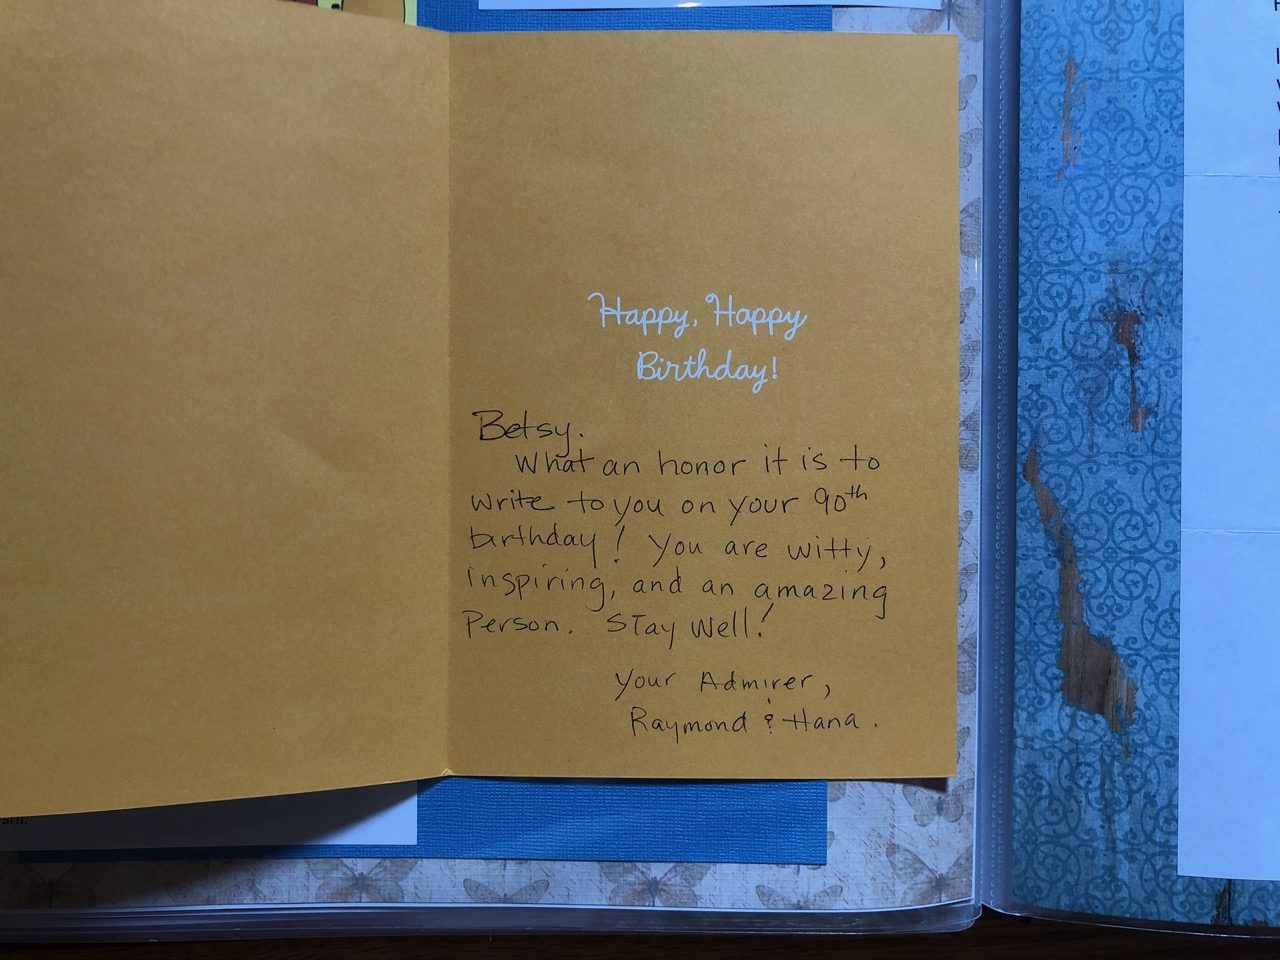 Happy, Happy
Birthday!
Betsy.
What an honor it is to
write to you on your 90th
birthday! You are witty,
inspiring, and an amazing
Person. Stay Well!
Your Admirer,
Raymond & Hana.